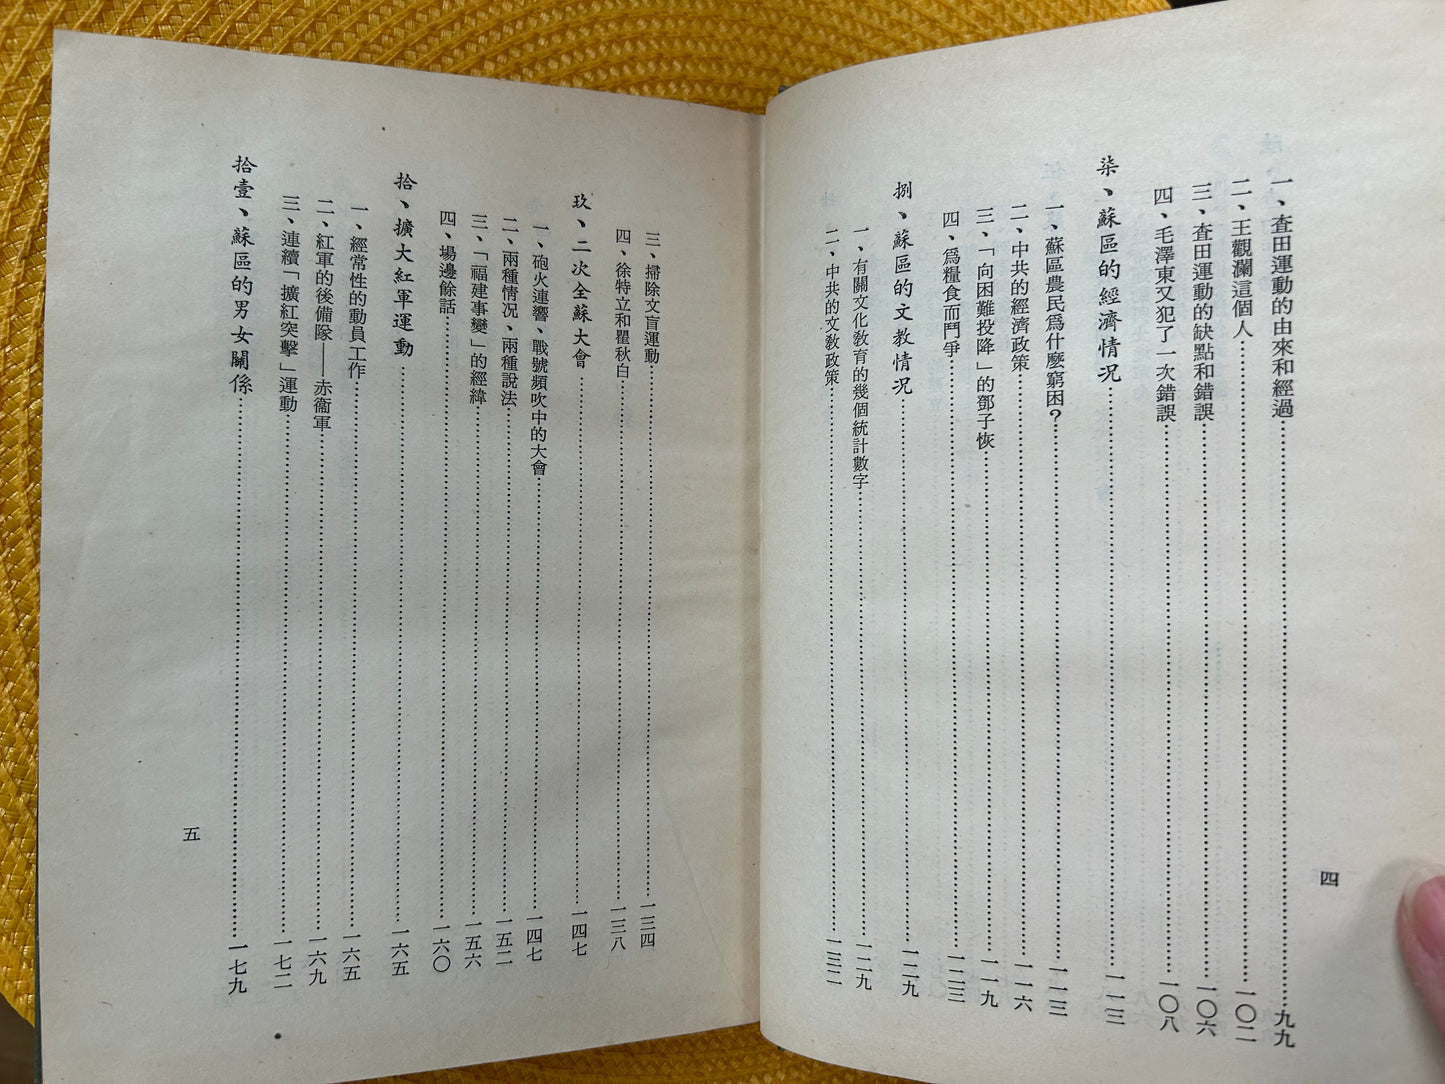 一、查田運動的由來和經過……九九
二、王觀瀾這個人……一〇二
三、查田運動的缺點和錯誤……一〇六
四、毛澤東又犯了一次錯誤……一〇八
柒、蘇區的經濟情況……一一三
一、蘇區農民爲什麼窮困？……一一三
二、中共的經濟政策……一一六
三、「向困難投降」的鄧子恢……一一九
四、爲糧食而鬥爭……一二三
捌、蘇區的文教情況……一二九
一、有關文化教育的幾個統計數字……一二九
二、中共的文教政策……一三二
四
三、掃除文盲運動……一三四
四、徐特立和瞿秋白……一三八
玖、二次全蘇大會……一四七
一、砲火連響、戰號頻吹中的大會……一四七
二、兩種情況、兩種說法……一五二
三、「福建事變」的經緯……一五六
四、場邊餘話……一六〇
拾、擴大紅軍運動……一六五
一、經常性的動員工作……一六五
二、紅軍的後備隊——赤衞軍……一六九
三、連續「擴紅突擊」運動……一七二
拾壹、蘇區的男女關係……一七九
五